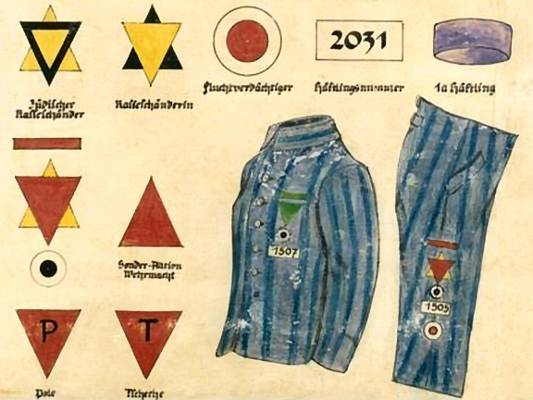 2031
Jüdischer
Rasseschänder
Rasseschänderin
Fluchtverdächtiger
Häftlingsnummer
1a Häftling
Sonder-Aktion
Wehrmacht
1507
1505
P
T
Pole
Tscheche